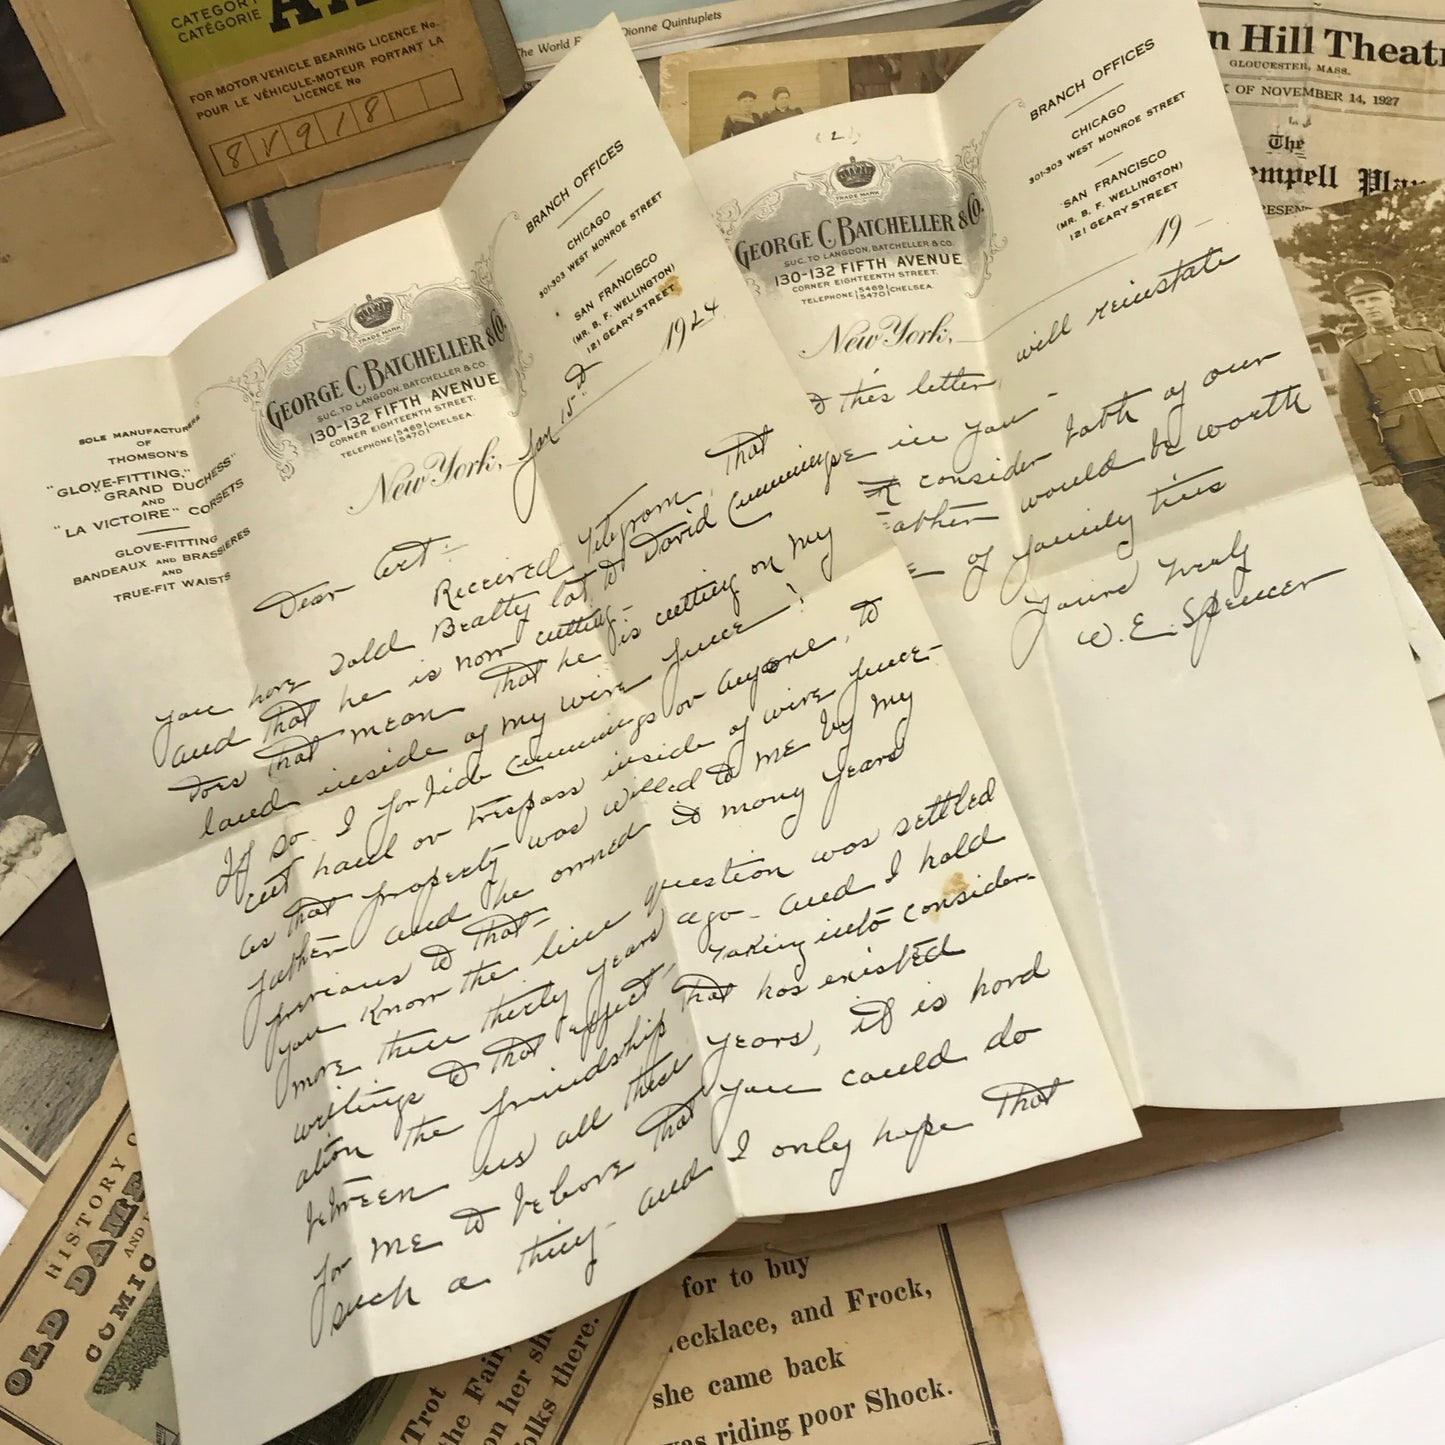 CATEGORY
CATÉGORIE
FOR MOTOR VEHICLE BEARING LICENCE No.
POUR LE VÉHICULE-MOTEUR PORTANT LA
LICENCE No
8 V 9 1 8
The World Dionne Quintuplets
n Hill Theatr
GLOUCESTER, MASS.
K OF NOVEMBER 14, 1927
The
empell Play
RESEN
SOLE MANUFACTURERS
OF
THOMSON'S
"GLOVE-FITTING,"
"GRAND DUCHESS"
AND
"LA VICTOIRE" CORSETS
GLOVE-FITTING
BANDEAUX AND BRASSIERES
AND
TRUE-FIT WAISTS
TRADE MARK
GEORGE C. BATCHELLER & CO.
SUC. TO LANGDON, BATCHELLER & CO.
130-132 FIFTH AVENUE
CORNER EIGHTEENTH STREET.
TELEPHONE 5469 5470 CHELSEA.
BRANCH OFFICES
CHICAGO
301-303 WEST MONROE STREET
SAN FRANCISCO
(MR. B. F. WELLINGTON)
121 GEARY STREET
New York, Jan 15th 1924
Dear Art:-
Received Telegram, That
you have sold Beatty lot to David Cummings
and that he is now cutting-
Does that mean that he is cutting on my
land inside of my wire fence!
If so. I forbide Cummings or anyone, to
cut haul or trespass inside of wire fence-
as that property was willed to me by my
father and he owned it many years
previous to that-
you know the line question was settled
more then thirty years ago- and I hold
writings to that effect, Taking into consider-
ation the friendship that has existed
between us all these years, it is hard
for me to beleave that you could do
such a thing- and I only hope that
(2)
TRADE MARK
GEORGE C. BATCHELLER & CO.
SUC. TO LANGDON, BATCHELLER & CO.
130-132 FIFTH AVENUE
CORNER EIGHTEENTH STREET.
TELEPHONE 5469 5470 CHELSEA.
BRANCH OFFICES
CHICAGO
301-303 WEST MONROE STREET
SAN FRANCISCO
(MR. B. F. WELLINGTON)
121 GEARY STREET
New York, 19-
this letter, will reinstate
in you-
consider both of our
would be worth
of family ties
Yours truly
W. E. Spencer
HISTORY
OLD DAME
AND
COMIC
Trot
the Fair
on her sh
olks there.
for to buy
ecklace, and Frock,
she came back
was riding poor Shock.